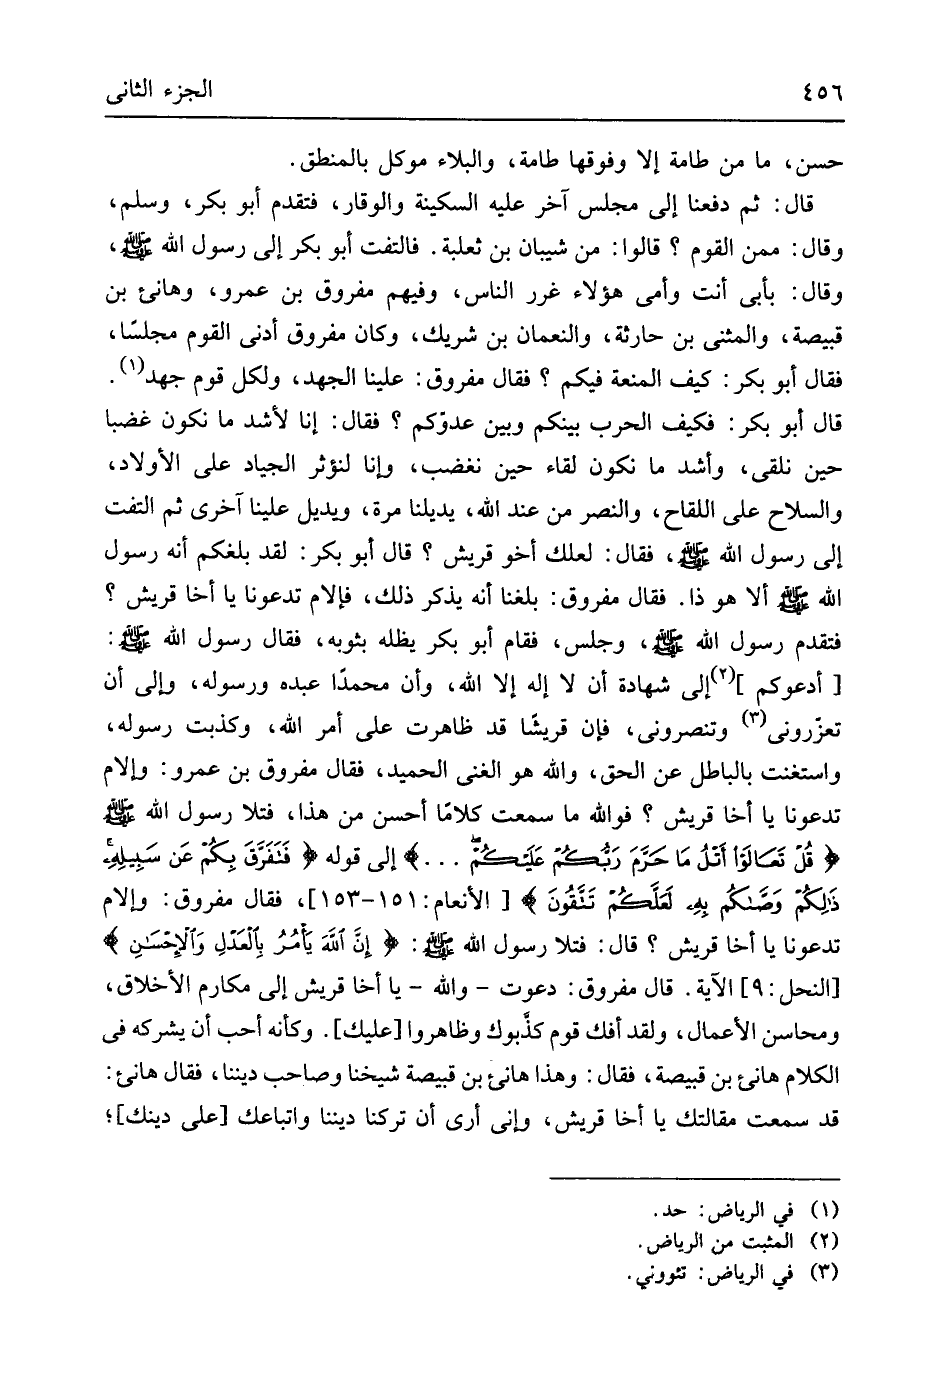 ٤٥٦ الجزء الثانى
حسن، ما من طامة إلا وفوقها طامة، والبلاء موكل بالمنطق.
قال: ثم دفعنا إلى مجلس آخر عليه السكينة والوقار، فتقدم أبو بكر، وسلم،
وقال: ممن القوم ؟ قالوا: من شيبان بن ثعلبة. فالتفت أبو بكر إلى رسول الله ﷺ،
وقال: بأبى أنت وأمى هؤلاء غرر الناس، وفيهم مفروق بن عمرو، وهانئ بن
قبيصة، والمثنى بن حارثة، والنعمان بن شريك، وكان مفروق أدنى القوم مجلسًا،
فقال أبو بكر: كيف المنعة فيكم ؟ فقال مفروق: علينا الجهد، ولكل قوم جهد(١).
قال أبو بكر: فكيف الحرب بينكم وبين عدوّكم ؟ فقال: إنا لأشد ما نكون غضبا
حين نلقى، وأشد ما نكون لقاء حين نغضب، وإنا لنؤثر الجياد على الأولاد،
والسلاح على اللقاح، والنصر من عند الله، يديلنا مرة، ويديل علينا آخرى ثم التفت
إلى رسول الله ﷺ، فقال: لعلك أخو قريش ؟ قال أبو بكر: لقد بلغكم أنه رسول
الله ﷺ ألا هو ذا. فقال مفروق: بلغنا أنه يذكر ذلك، فإلام تدعونا يا أخا قريش ؟
فتقدم رسول الله ﷺ، وجلس، فقام أبو بكر يظله بثوبه، فقال رسول الله ﷺ:
[ أدعوكم ](٢)إلى شهادة أن لا إله إلا الله، وأن محمدًا عبده ورسوله، وإلى أن
تعزّرونى(٣) وتنصرونى، فإن قريشًا قد ظاهرت على أمر الله، وكذبت رسوله،
واستغنت بالباطل عن الحق، والله هو الغنى الحميد، فقال مفروق بن عمرو: وإلام
تدعونا يا أخا قريش ؟ فوالله ما سمعت كلامًا أحسن من هذا، فتلا رسول الله ﷺ
﴿ قُلْ تَعَالَوْا أَتْلُ مَا حَرَّمَ رَبُّكُمْ عَلَيْكُمْ ۖ ...﴾ إلى قوله ﴿ فَتَفَرَّقَ بِكُمْ عَن سَبِيلِهِۦ ۚ
ذَٰلِكُمْ وَصَّىٰكُم بِهِۦ لَعَلَّكُمْ تَتَّقُونَ ﴾ [ الأنعام:١٥١-١٥٣]، فقال مفروق: وإلام
تدعونا يا أخا قريش ؟ قال: فتلا رسول الله ﷺ: ﴿ إِنَّ ٱللَّهَ يَأْمُرُ بِٱلْعَدْلِ وَٱلْإِحْسَـٰنِ ﴾
[النحل:٩] الآية. قال مفروق: دعوت - والله - يا أخا قريش إلى مكارم الأخلاق،
ومحاسن الأعمال، ولقد أفك قوم كذَّبوك وظاهروا [عليك]. وكأنه أحب أن يشركه فى
الكلام هانئ بن قبيصة، فقال: وهذا هانئ بن قبيصة شيخنا وصاحب ديننا، فقال هانئ:
قد سمعت مقالتك يا أخا قريش، وإنى أرى أن تركنا ديننا واتباعك [على دينك]؛
(١) في الرياض: حد.
(٢) المثبت من الرياض.
(٣) في الرياض: تئووني.